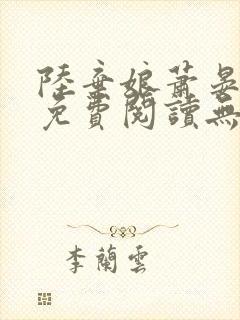 陸棄娘蕭晏
免費閱讀無
李蘭雲